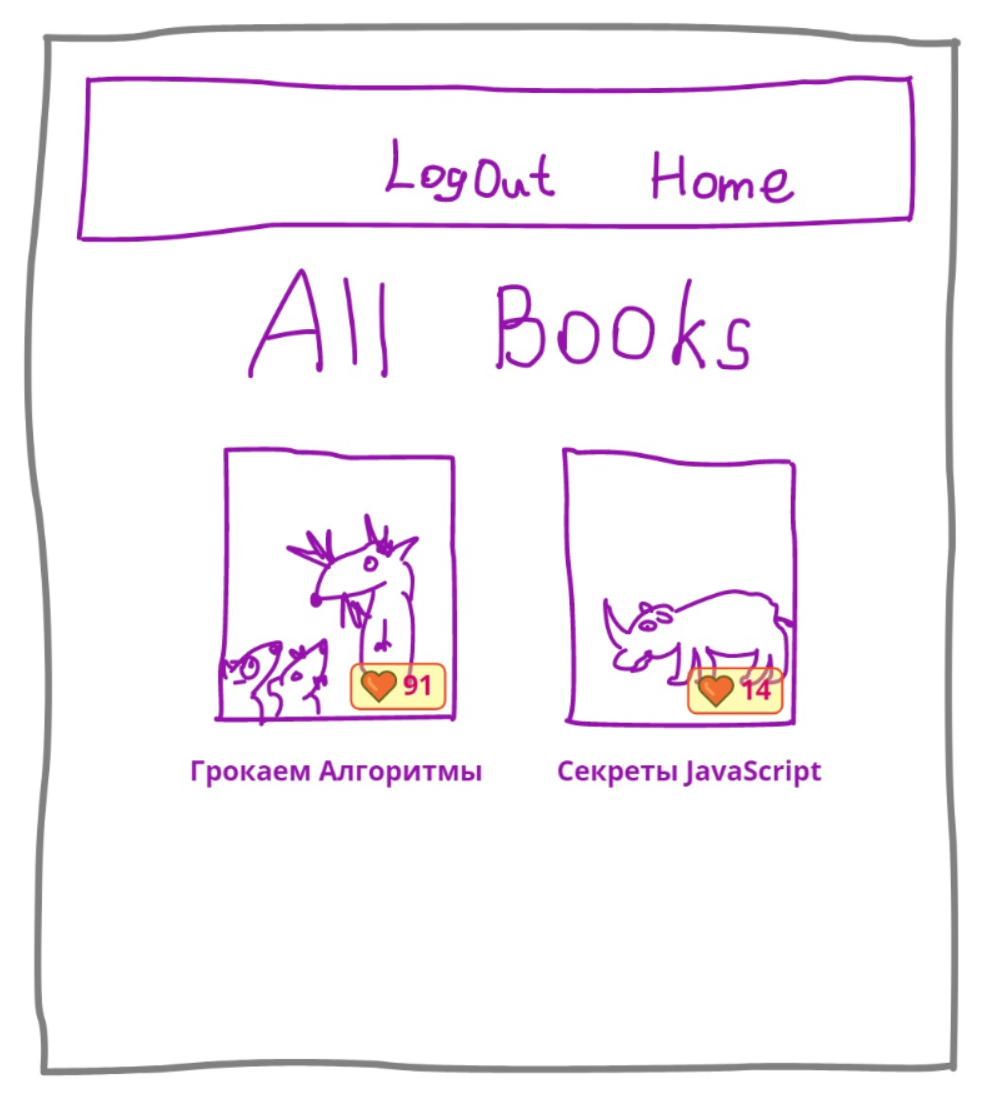 LogOut Home
All Books
91 14
Грокаем Алгоритмы Секреты JavaScript